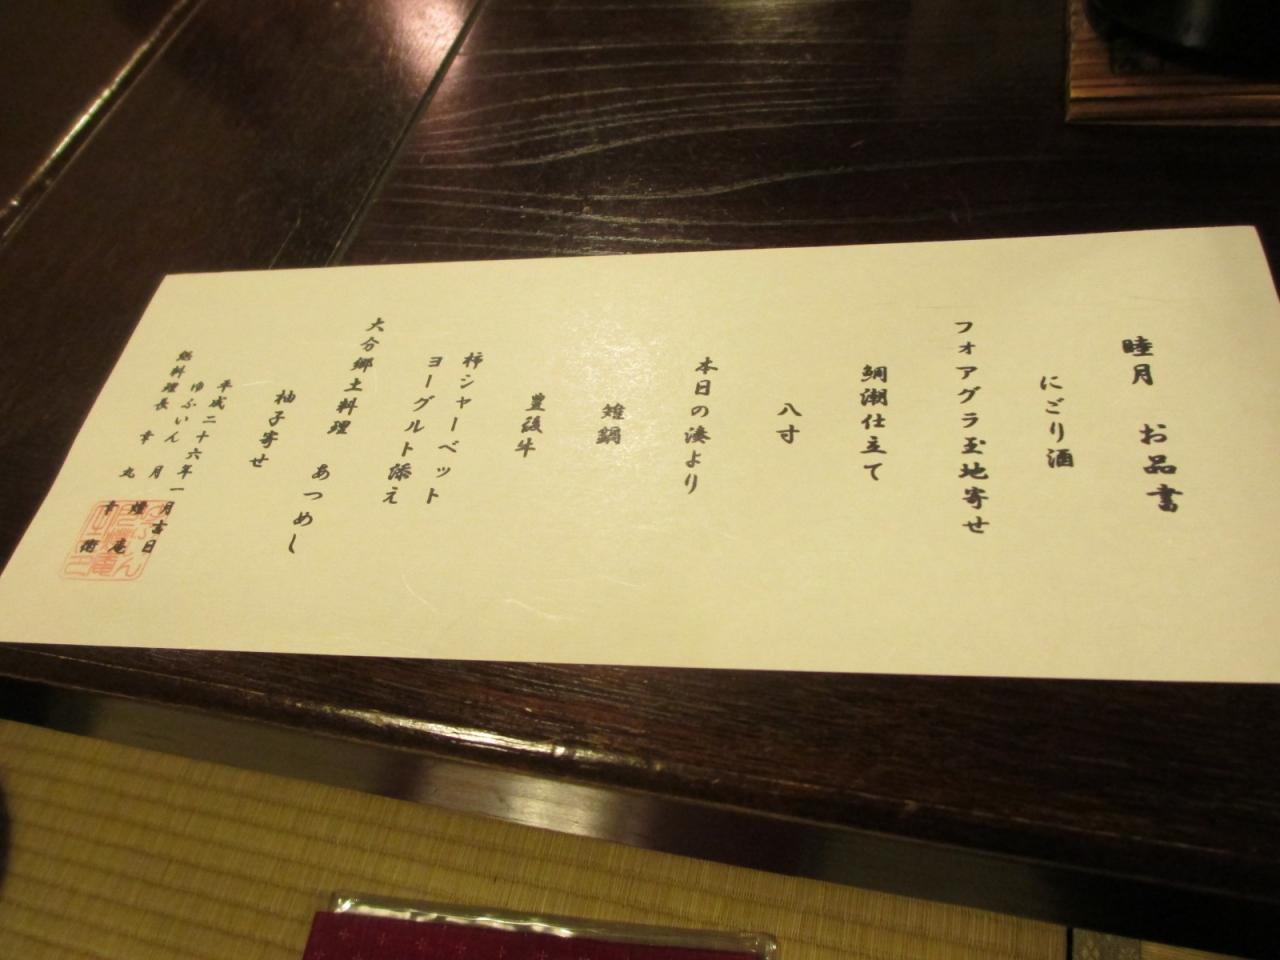 睦月 お品書
にごり酒
フォアグラ玉地寄せ
鯛潮仕立て
八寸
本日の湊より
雉鍋
豊後牛
柿シャーベット
ヨーグルト添え
大分郷土料理 あつめし
柚子寄せ
平成二十六年一月吉日
ゆふいん 月燈庵
総料理長 幸丸 幸衛